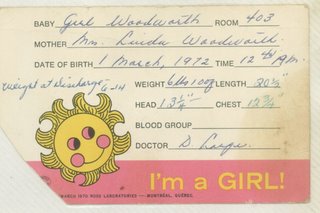 BABY Girl Woodworth ROOM 403
MOTHER Mrs. Linda Woodworth.
DATE OF BIRTH 1 March, 1972 TIME 12 AM.
Weight at Discharge 6-14 WEIGHT 6lbs 10oz LENGTH 20½"
HEAD 13¼" CHEST 12¾"
BLOOD GROUP
DOCTOR D
I'm a GIRL!
MARCH 1970 ROSS LABORATORIES — MONTRÉAL, QUÉBEC.